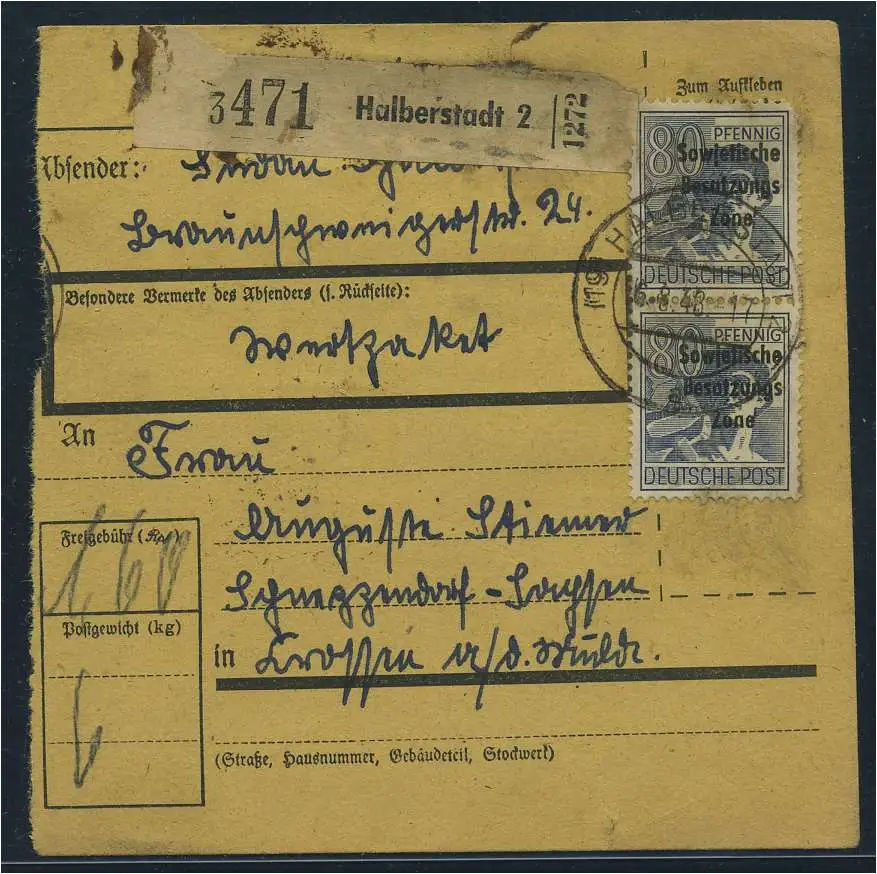 3471 Halberstadt 2 1272
Zum Aufkleben
Absender:
Braunschweigerstr. 24.
Besondere Vermerke des Absenders (s. Rückseite):
Wertpaket
An Frau
Auguste Stiemer
Schneppendorf-Sachsen
in Crossen a/d. Mulde.
(Straße, Hausnummer, Gebäudeteil, Stockwerk)
Freigebühr (Rpf)
1 60
Postgewicht (kg)
80 PFENNIG
Sowjetische
Besatzungs
Zone
DEUTSCHE POST
80 PFENNIG
Sowjetische
Besatzungs
Zone
DEUTSCHE POST
(19b) HALBERSTADT